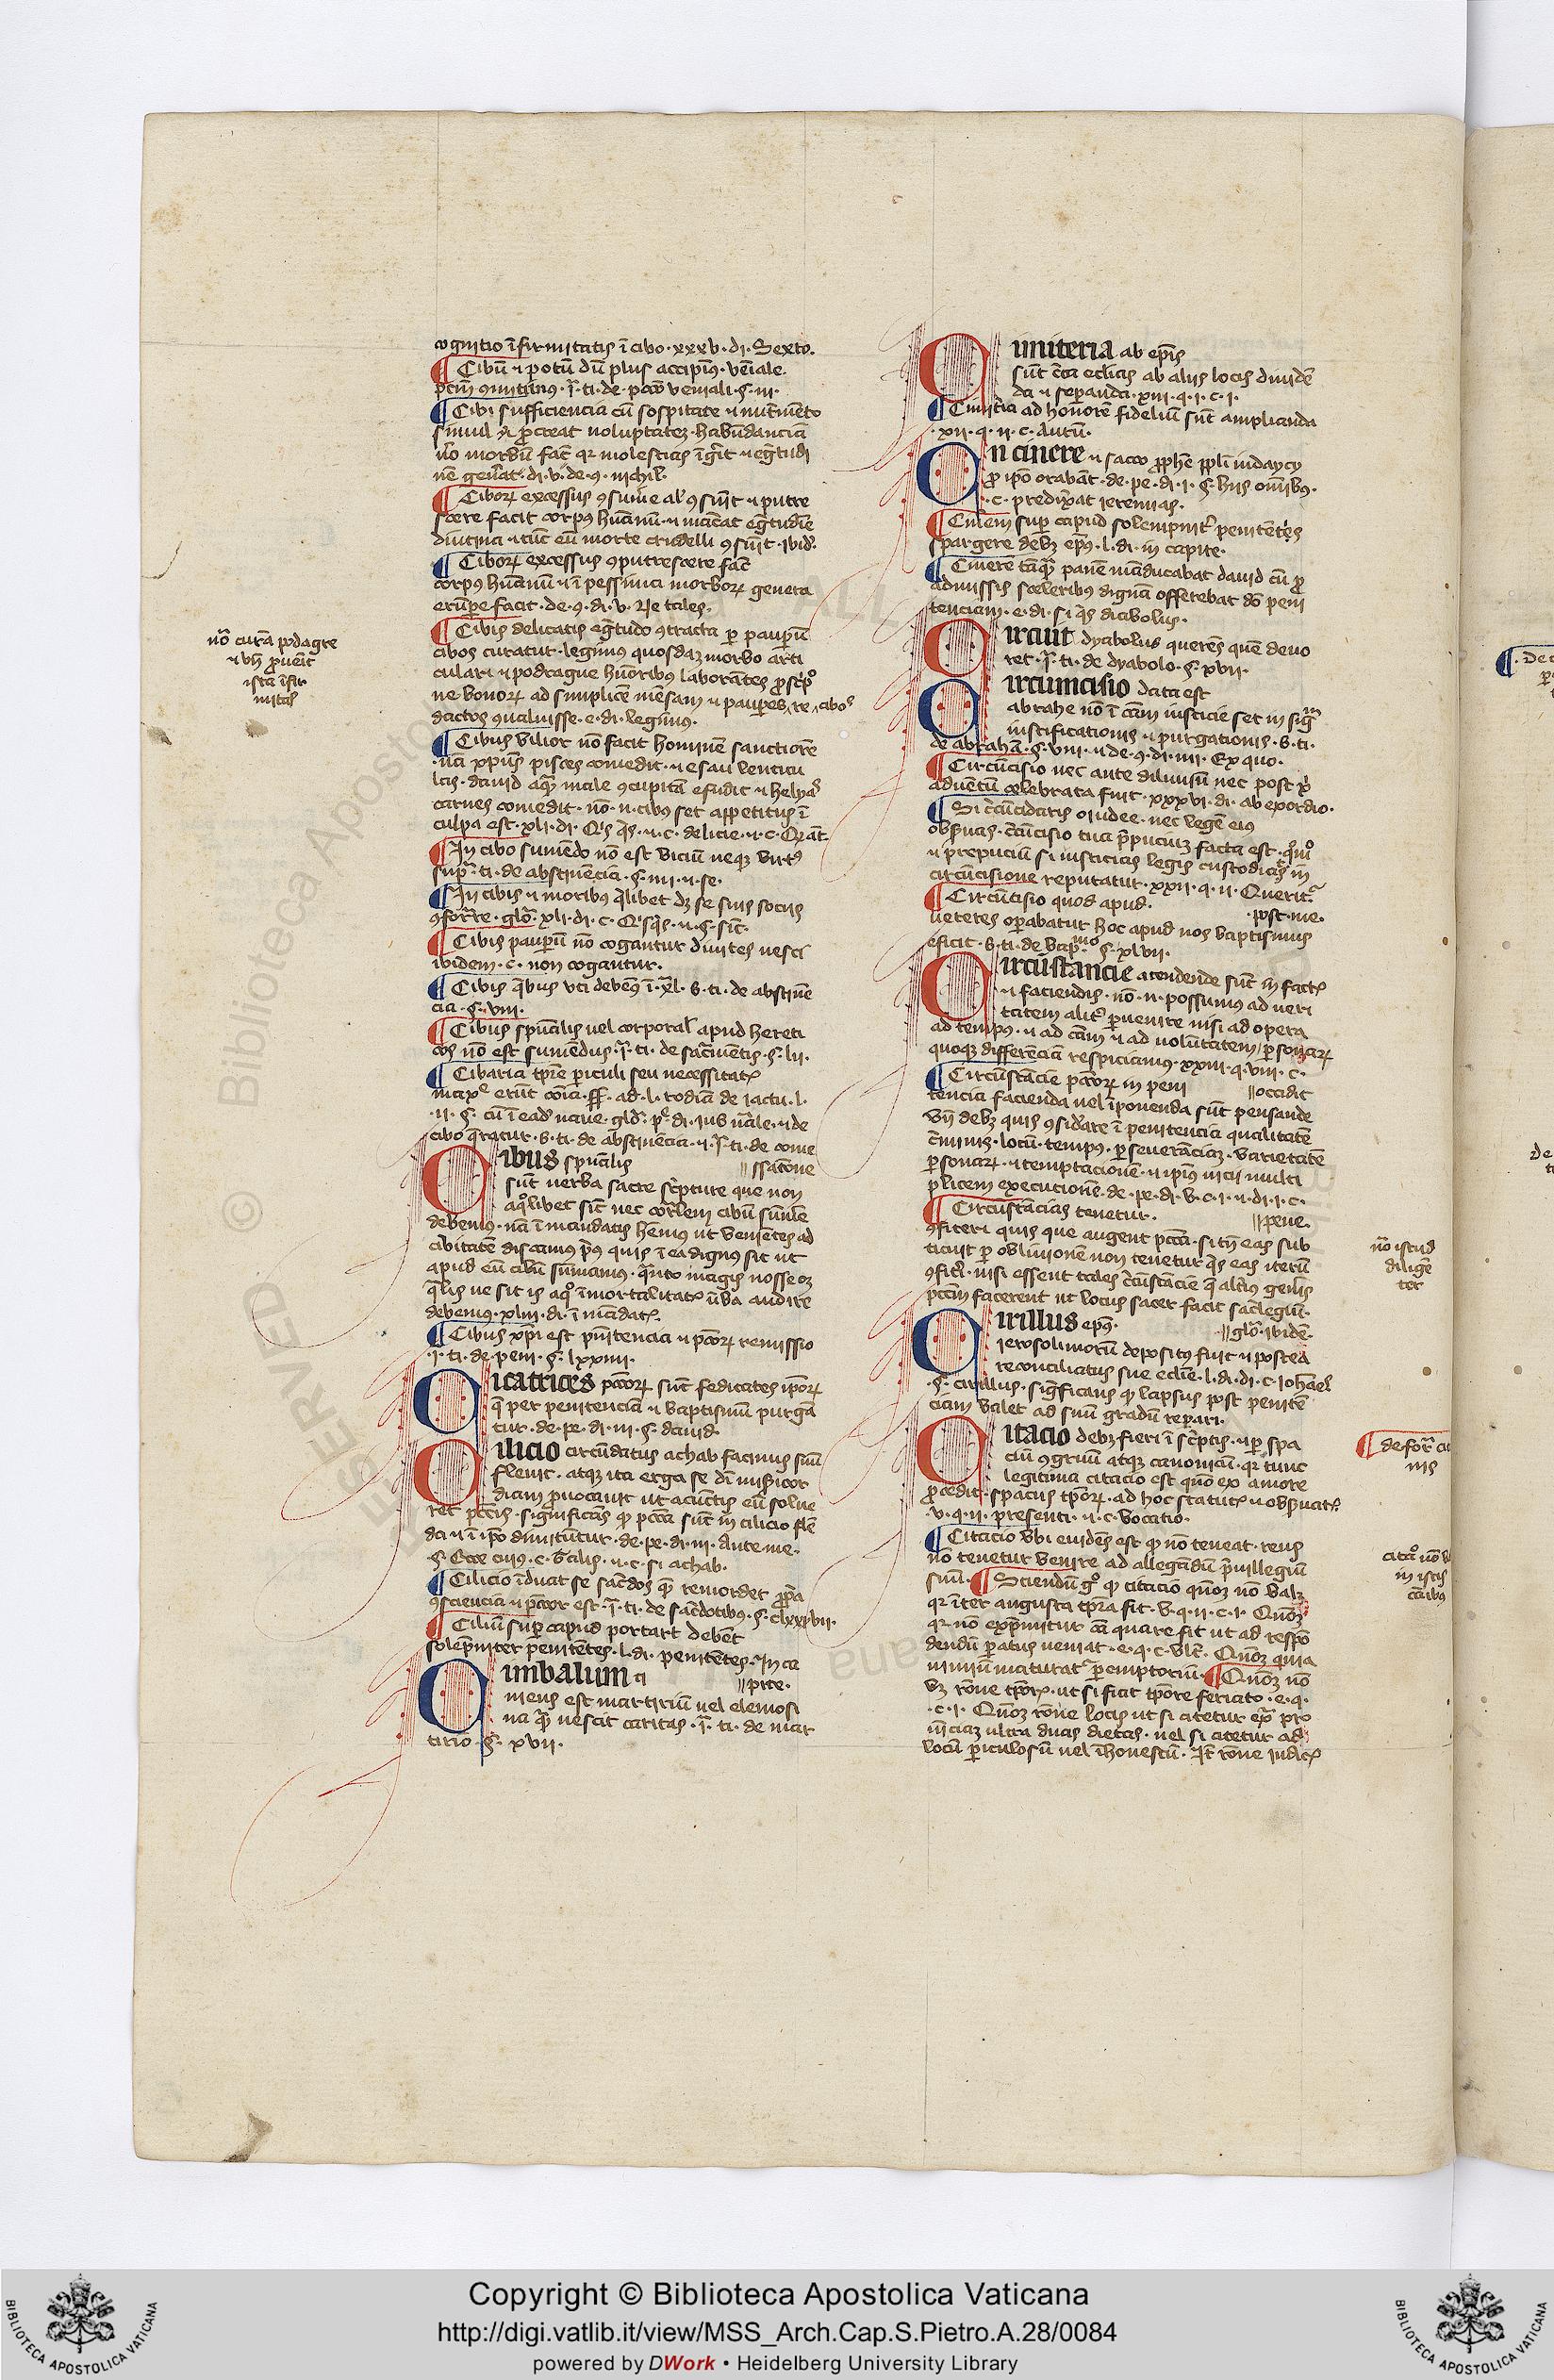 cognitio īfirmitatis ī cibo · xxxv · di · Sexto.
¶ Cibū ⁊ potū dū plus accipimꝰ · veīale
pctm̄ ꝯmittimꝰ · ī · ti · de · pccō veniali · §. iii ·
¶ Cibi sufficiencia cū sospitate ⁊ nutⁱmēto
simul ⁊ ꝓcreat voluptatez · habūdancia
v̄o morbū facͭ qꝛ molestias īgīt ⁊ eg̅tudi
nē gen̄at · di · v · de · ꝯ · nichil
¶ Ciboꝝ excessus ꝯsumē al' ꝯsūīt ⁊ putre
scere facit corpꝰ hūanū · ⁊ macerat eg̅tudīe
diutina ⁊ tūc eū morte crudelli ꝯsūīt · ibid.
¶ Ciboꝝ excessus ꝯputrescere facͭ
corpꝰ hūanū ⁊ ī pessima morboꝝ genera
erūpe facit · de · ꝯ · di · v · Ne tales
¶ Cibis delicatis eg̅tudo ꝯtracta per paupeꝝ
cibos curatur · legimꝰ quosdaz morbo arti
culari ⁊ podrague hūoribꝰ laborātes ꝓscⁱpͦ
ne bonoꝝ ad simplicē mēsam ⁊ pauperes re cibos
dactos ꝯualuisse · e · di · legimꝰ.
¶ Cibus vilior nō facit hominē sanctiorē
nā xpūs pisces comedit · ⁊ esau lenticu
las · dauid aquā male ꝯcupitā efudit ⁊ helyas
carnes comedit · nō · n · cibꝰ set appetitus ī
culpa est · xli · di · Qⁱs qͣs · ⁊ · c · delicie · ⁊ · c · Qͣnt
¶ In cibo sumēdo nō est viciū neqꝫ virtꝰ
supͣ · ti · de abstinēcia · §. iiii · ⁊ · se ·
¶ In cibis ⁊ moribꝰ qͥlibet dꝫ se suis sociis
ꝯformare · glo · xli · di · c · Qⁱsqͣs · ⁊ · §. sict ·
¶ Cibis paupeꝝ nō cogantur diuites uesci
ibidem · c · non cogantur.
¶ Cibis qͥbus uti debemꝰ ī · xl · s · ti · de abstinē
cia · §. viii ·
¶ Cibus spūalis uel corporal apud hereti
cos nō est sumēdus · ī · ti · de sacͣmentis · §. lii ·
¶ Cibaria tp̄re periculi seu necessitatꝭ
maxⁱe erūt cōīa · ff · ad · l · rodia de iactu · l ·
· ii · §. cū ī eadē naue · glo · p · di · ius nͣale · ⁊ de
cibo qͣratur · s · ti · de abstinēcia · ⁊ · ī · ti · de come
Cibus spūalis // ssacōne
sūt uerba sacre scⁱpture que non
aqͦlibet sict nec corlem cibū sumē
debemus · nā ī mandatis hēmꝰ ut venientes ad
cibitatē discamus prꝰ quis ī ea dignꝰ sit ut
apud eū cibū sumamus · qͣnto magis nosse oꝫ
qͣlis ne sit is aqͦ īmortalitatꝭ v̄ba audire
debemus · xliii · di · ī mādatꝭ.
¶ Cibus xpi est pn̄itencia ⁊ pccoꝝ remissio
· ī · ti · de peni · §. lxxiiii ·
Cicatrices pccoꝝ sūt feditates ipoꝝ
qͥ per penitenciā ⁊ baptismū purgā
tur · de · pe · di · iii · §. dauid ·
Cilicio circūdatus achab facinus suū
fleuit · atqꝫ ita erga se dī misⁱcor
diam ꝓuocauit ut acūctis eū solue
ret pctis · significās ꝙ pccā sūt in cilicio flē
da ⁊ ī ipo dimitūtur · de · pe · di · iii · Ante me ·
§. Ecce cuiꝰ · c · Talis · ⁊ · c · si achab ·
¶ Cilicio īduat se sac̄dos quē remordet ꝓpͥa
ꝯsciencia ⁊ pctor est · ī · ti · de sac̄dotibꝰ · §. clxxxvii ·
¶ Ciliū sup capud portare debent
solepniter penitētes · l · di · penitētes · In ca
Cimbalum ti // pite ·
niens est martiriū uel elemosi
na quā nescit caritas · ī · ti · de mar
tirio · §. xvii ·
nōͣ curā podagre
⁊ vn̄ ꝓueīt
ista īfir
mitas
Cimiteria ab epis
sūt cētā eclesiis ab aliis locis diuidē
da ⁊ sepanda · xiii · q · i · c · i ·
¶ Cimitͥa ad honorē fidelium sūt amplianda
· xii · q · ii · c · Aurū ·
In cinere ⁊ sacco ꝓphē ppli iudaycy
ꝓ ipō orabāt · de · pe · di · i · §. hiis omībꝰ ·
· c · predixat ieremias ·
¶ Cinem sup capud solempnit penitētes
spargere debꝫ epꝰ · l · di · in capite ·
¶ Cinerē tāqͣ panē māducabat dauid cū ꝓ
admissis sceleribꝰ dignā offerebat do peni
tenciam · e · di · si qͥs diabolus ·
Circuit dyabolus querēs quē deuo
ret · ī · ti · de dyabolo · §. xvii ·
Circumcisio data est
abrahe nō ī cām iusticie set in sigᵐ
iustificationis ⁊ purgationis · s · ti ·
de abrahā · §. viii · ⁊ de · ꝯ · di · iiii · Ex quo ·
¶ Circūcisio nec ante diluuiū nec post xͥ
aduentū celebrata fuit · xxxvi · di · ab exordio ·
¶ Si cⁱcūcidaris o iudee · nec legē eiꝰ
obsuas · cⁱcūcisio tua ppuciuꝫ facta est · qͦmͦ
⁊ prepuciū si iusticias legis custodiat in
circūcisione reputatur · xxii · q · ii · Queritͬ
¶ Circūcisio quod apud · post · me ·
ueteres operabatur hoc apud nos baptismus
eficit · s · ti · de bapᵐᵒ §. xlvii ·
Circūstancie atendende sūt in factꝭ
⁊ faciendis · nō · n · possumꝰ ad ueri
tatem alit peruenire nisi ad opera
ad tempꝰ · ⁊ ad cām ⁊ ad uoluntatem / personarꝝ
quoqꝫ differēciā respiciamus · xxiii · q · viii · c ·
¶ Circūstācie pccoꝝ in peni // occidit
tencia facienda uel īponenda sūt pensande
vn̄ debꝫ quis ꝯsidare ī penitencia qualitatē
cⁱminis · locū · tempus · perseueranciaꝫ · varietatē
personarꝝ · ⁊ temptacionē · ⁊ ipiꝰ uicii multi
plicem executionē · de · pe · di · v · c · i · ⁊ · di · i · c ·
¶ Circūstācias tenetur · // pene ·
ꝯfiteri quis que augent pccā · si tn̄ eas sub
ticuit per obliuionē non tenetur qͥs eas iterū
ꝯfitͥ · nisi essent tales cⁱcūstācie qͥ aliꝰ genꝰ
pctm facerent ut locus sacer facit sacͥlegiū ·
Cirillus epꝰ · // glo · ibidē ·
ierosolimorū depositꝰ fuit ⁊ postea
reconciliatus sue eclīe · l · di · di · c · iohāel
· §. cirillus · sigͥficans ꝙ lapsus post penitē
ciam valet ad suū gradū repari ·
Citacio debꝫ fieri ī scⁱptis · ⁊ per spa
ciū ꝯgruū atqꝫ canonicū · qꝛ tunc
legitima citacio est qn̄o ex amore
ꝓcedit · spacius tpoꝝ · ad hoc statutꝭ ⁊ obsuatꝭ ·
· v · q · ii · presenti · ⁊ · c · vocatio ·
¶ Citacio ubi euidēs est ꝙ nō teneat · reus
nō tenetur venire ad allegādū pⁱuillegiū
suū · ¶ Sciendū gͦ ꝙ citacio quoꝫ nō valꝫ
qꝛ īter angusta tpra fit · v · q · ii · c · i · Qn̄oꝫ
qꝛ nō expⁱmitur cā quare fit ut ad respō
dendū paratus ueniat · e · q · c · vlt · Qn̄oꝫ quia
nimiū maturatͬ peremptoriū · ¶ Qn̄oꝫ nō
vꝫ rōne tpoꝝ · ut si fiat tpore feriato · e · q ·
· c · i · Qn̄oꝫ rōne locis ut si citetur ex pro
uīciaꝫ ultra duas dietas · uel si citetur ad
locū periculosū uel īhonestū · Itē rōne iudicꝭ
nō istud
dilige
ter
Copyright © Biblioteca Apostolica Vaticana
http://digi.vatlib.it/view/MSS_Arch.Cap.S.Pietro.A.28/0084
powered by DWork • Heidelberg University Library
BIBLIOTECA APOSTOLICA VATICANA
BIBLIOTECA APOSTOLICA VATICANA